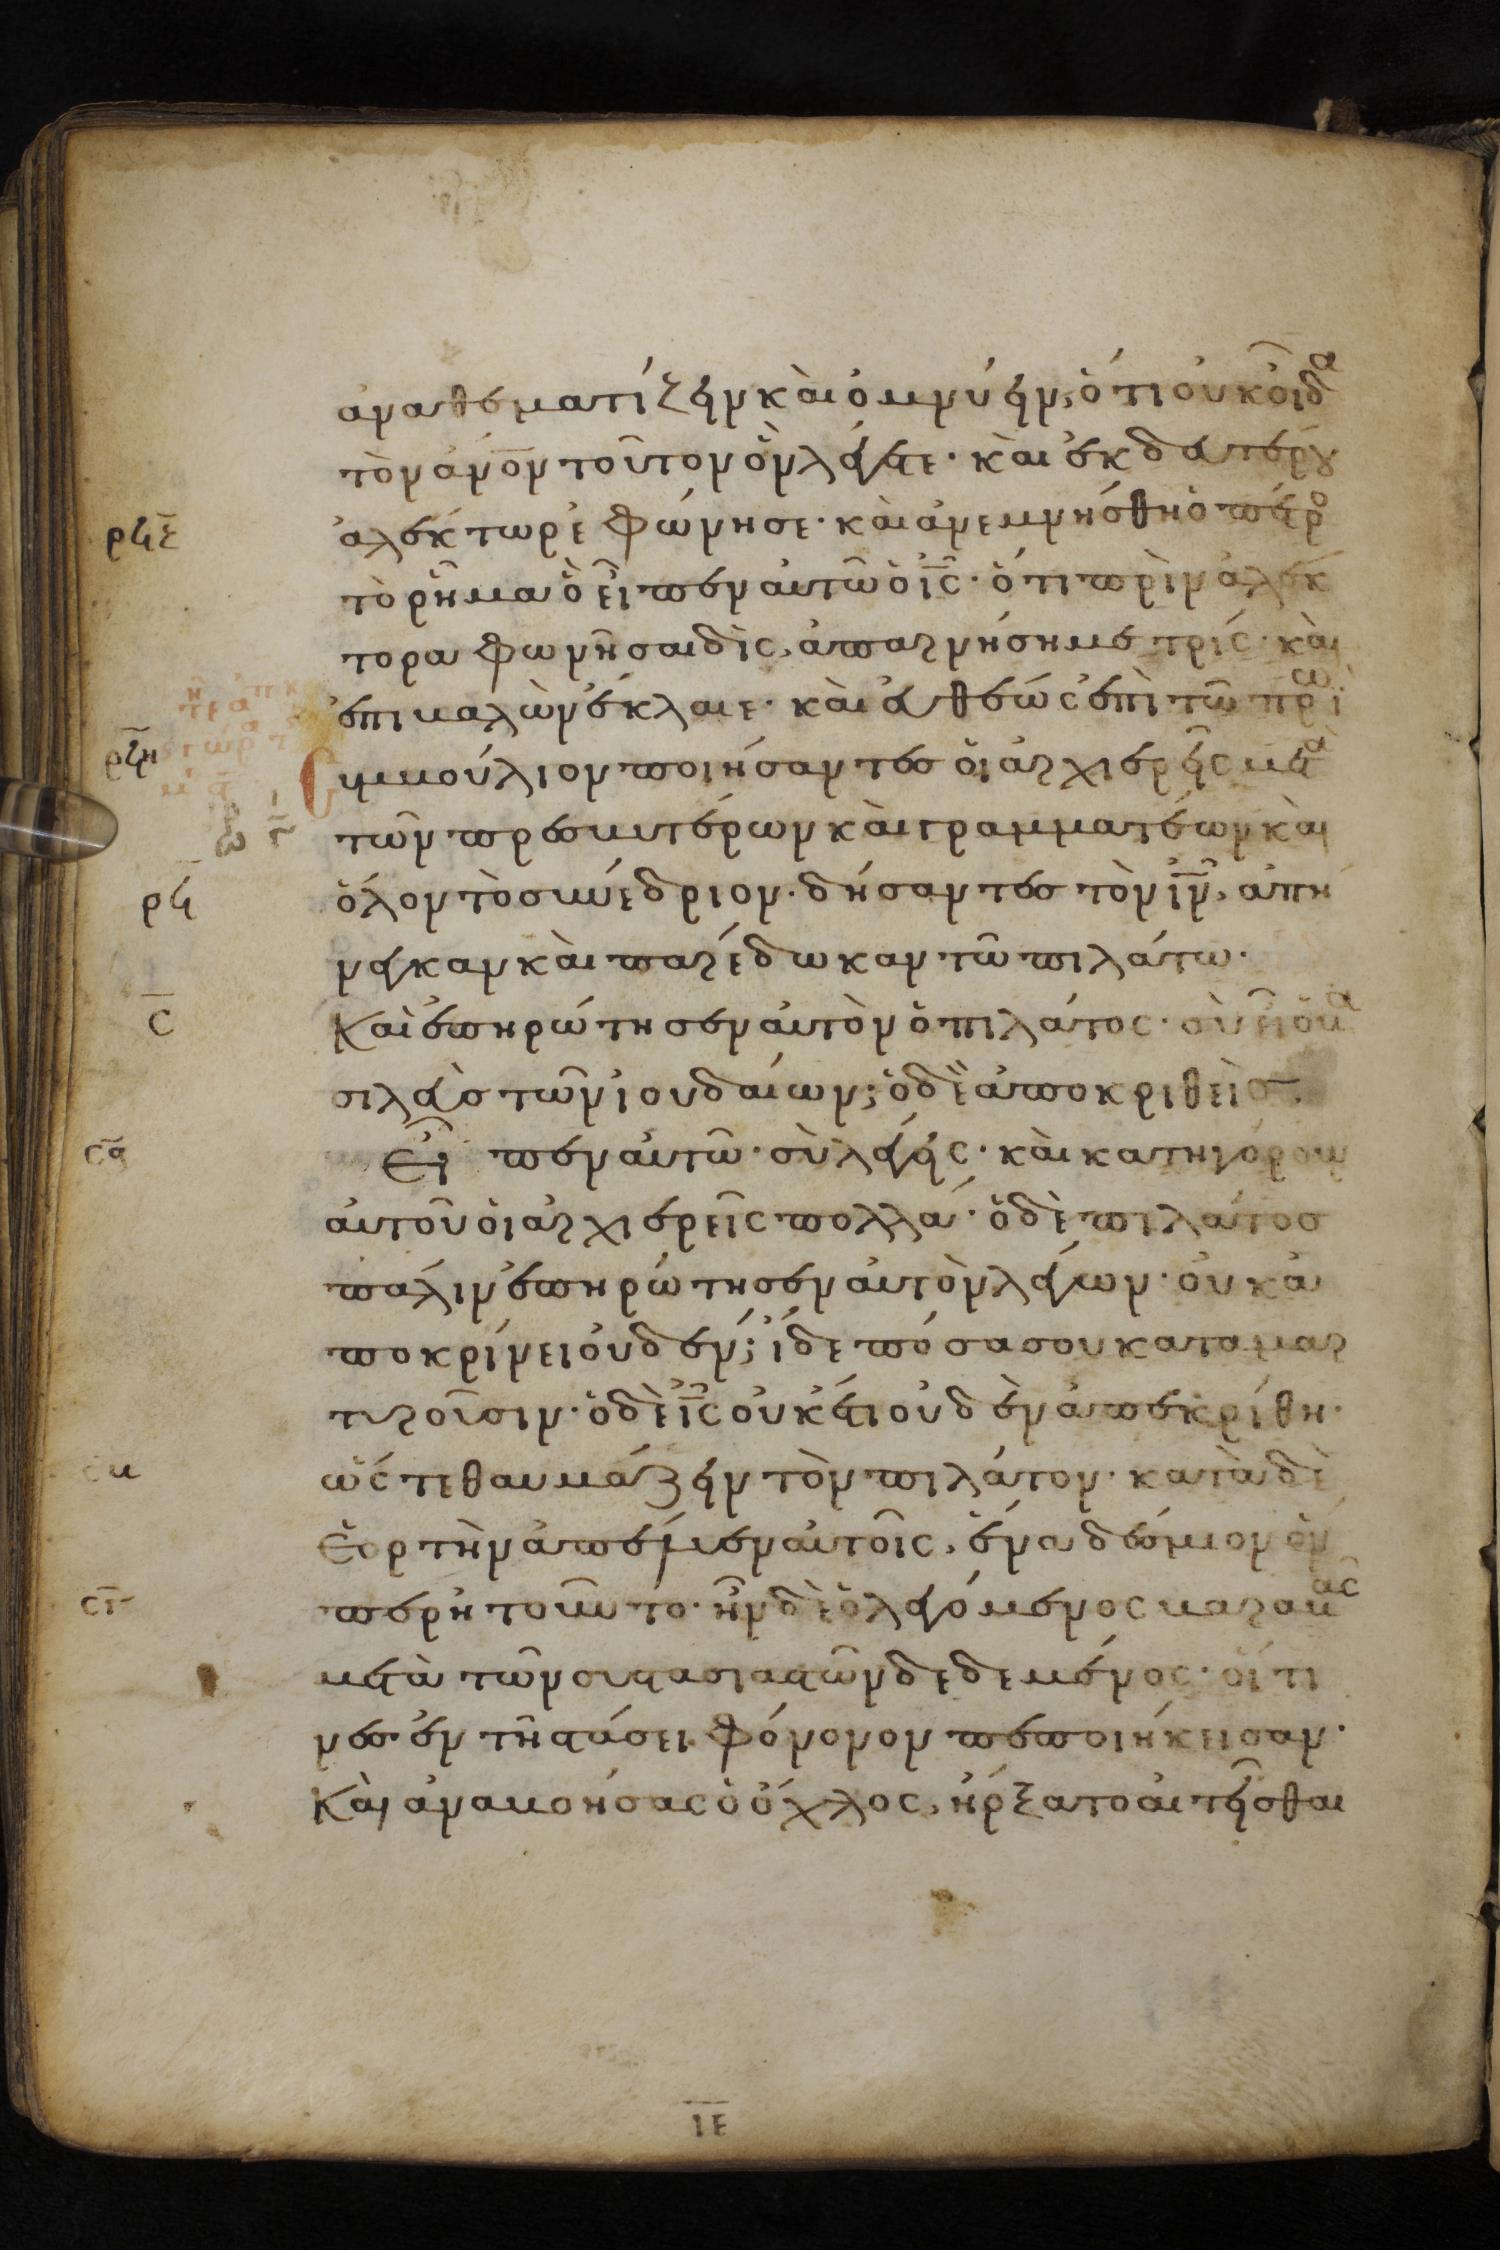 ἀναθεματίζειν καὶ ὀμνύειν, ὅτι οὐκ οἶδα
τὸν ἄνον τοῦτον ὃν λέγετε· καὶ ἐκ δευτέρου
ρϟε ἀλέκτωρ ἐφώνησε· καὶ ἀνεμνήσθη ὁ πέτρο
τὸ ῥῆμα ὃ εἶπεν αὐτῶ ὁ ἰς· ὅτι πρὶν ἀλέκ
τορα φωνῆσαι δὶς, ἀπαρνήση με τρίς· καὶ
ἐπιβαλὼν ἔκλαιε· καὶ εὐθέως ἐπὶ τῶ πρωὶ
ρϟη συμβούλιον ποιήσαντες οἱ ἀρχιερεῖς μετὰ
τῶν πρεσβυτέρων καὶ γραμματέων καὶ
ρϟ ὅλον τὸ συνέδριον· δήσαντες τὸν ἰν, ἀπή
νεγκαν καὶ παρέδωκαν τῶ πιλάτω·
ς Καὶ ἐπηρώτησεν αὐτὸν ὁ πιλάτος· σὺ εἶ ὁ βα
σιλεὺς τῶν ἰουδαίων; ὁ δὲ ἀποκριθεὶς
σα Εἶπεν αὐτῶ· σὺ λέγεις· καὶ κατηγόρουν
αὐτοῦ οἱ ἀρχιερεῖς πολλά· ὁ δὲ πιλάτος
πάλιν ἐπηρώτησεν αὐτὸν λέγων· οὐκ ἀ
ποκρίνει οὐδέν; ἴδε πόσα σου καταμαρ
τυροῦσιν· ὁ δὲ ἰς οὐκέτι οὐδὲν ἀπεκρίθη·
σβ ὥστε θαυμάζειν τὸν πιλάτον· κατὰ δὲ
Ἑορτὴν ἀπέλυεν αὐτοῖς, ἕνα δέσμιον ὅν
σγ περ ἠτοῦντο· ἦν δὲ ὁ λεγόμενος βαραββᾶς
μετὰ τῶν συστασιαστῶν δεδεμένος· οἵτι
νες ἐν τῆ στάσει φόνον πεποιήκεισαν·
Καὶ ἀναβοήσας ὁ ὄχλος, ἤρξατο αἰτεῖσθαι
ιε